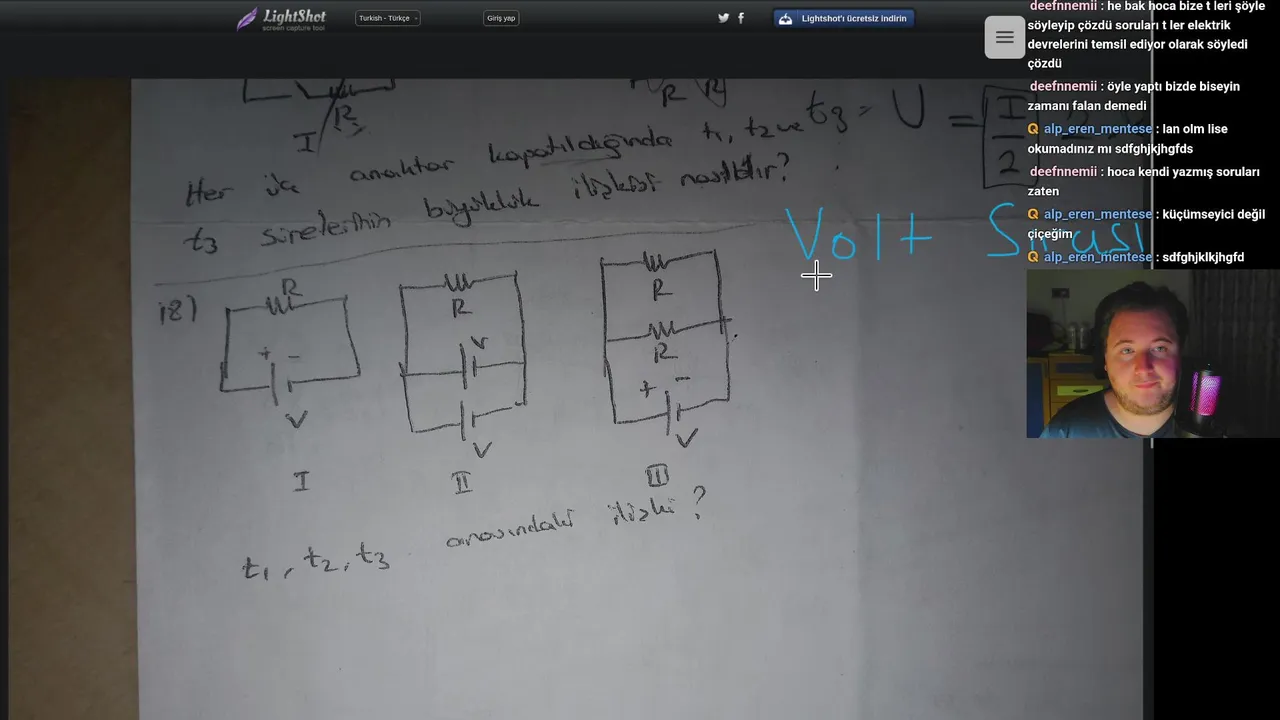 LightShot
screen capture tool
Turkish - Türkçe
Giriş yap
Lightshot'ı ücretsiz indirin
deefnnemii : he bak hoca bize t leri şöyle
söyleyip çözdü soruları t ler elektrik
devrelerini temsil ediyor olarak söyledi
çözdü
deefnnemii : öyle yaptı bizde biseyin
zamanı falan demedi
alp_eren_mentese : lan olm lise
okumadınız mı sdfghjkjhgfds
deefnnemii : hoca kendi yazmış soruları
zaten
alp_eren_mentese : küçümseyici değil
çiçeğim
alp_eren_mentese : sdfghjklkjhgfd
R
R R
I
t3 = U = I
2
Her iki anahtar kapatıldığında t1, t2 ve
t3 sürelerinin büyüklük ilişkisi nasıldır?
Volt Sırası
18)
R
+ -
V
I
R
V
V
II
R
R
+ -
V
III
t1, t2, t3 arasındaki ilişki?